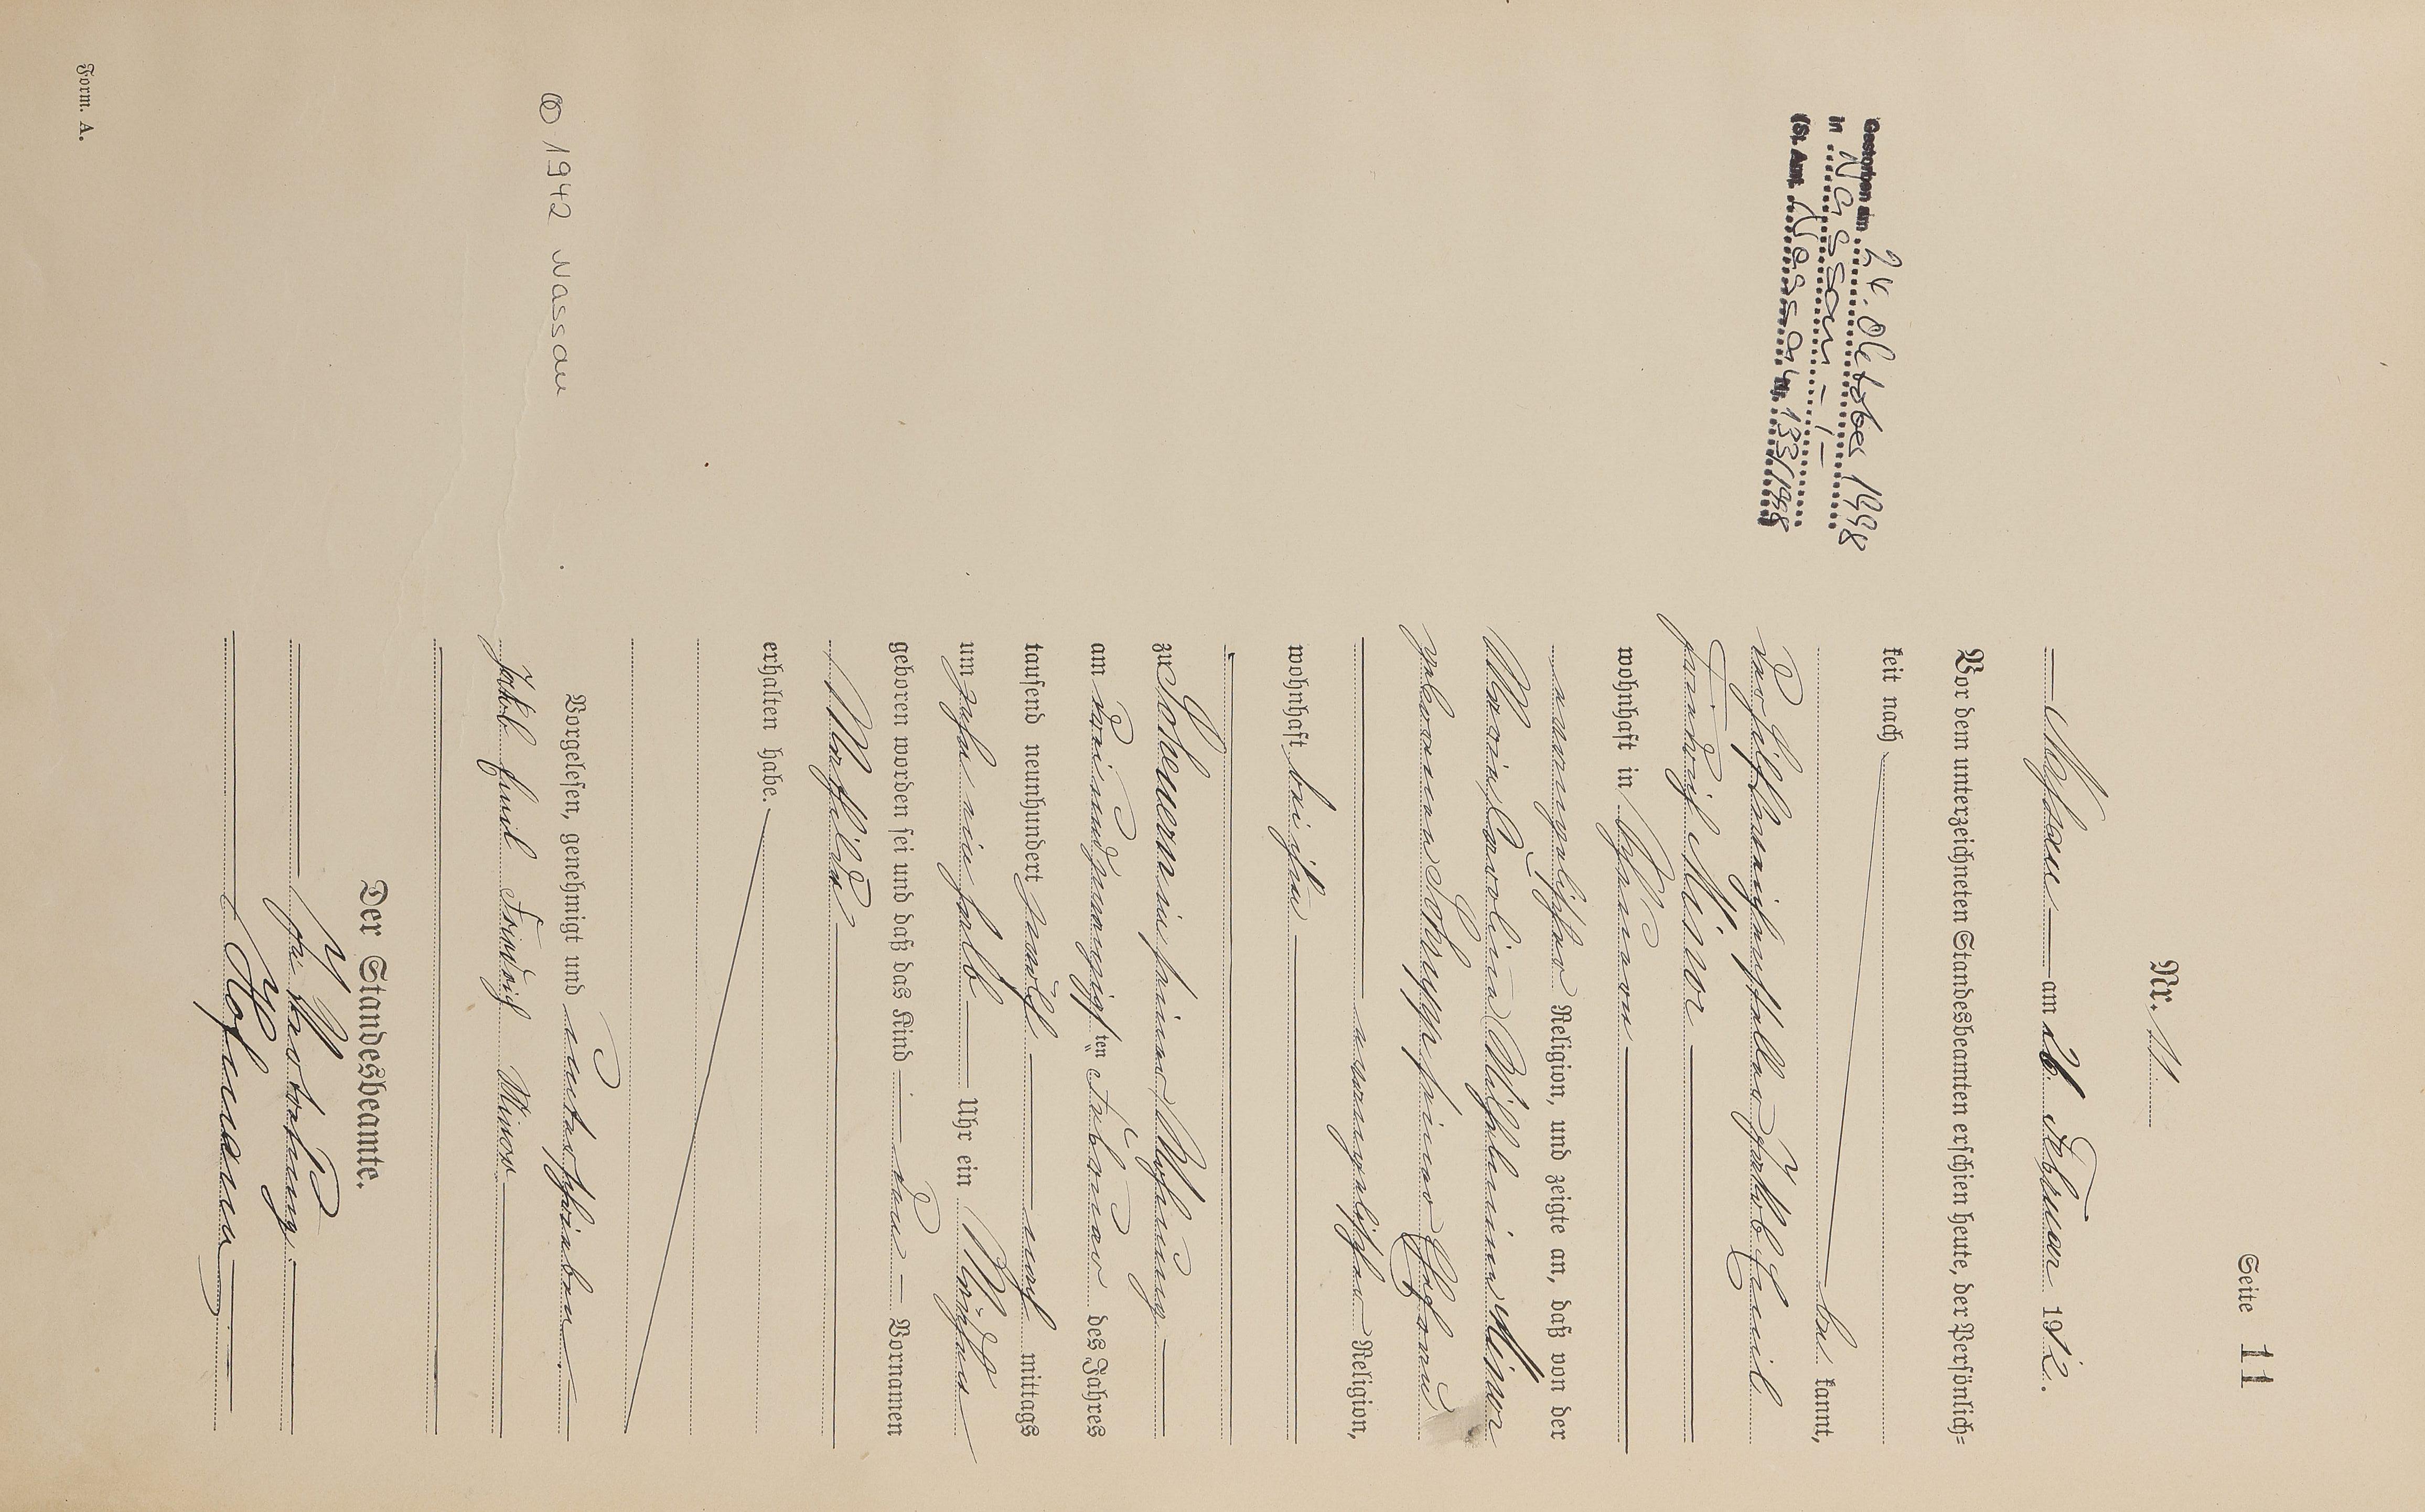 Seite 11
Nr. 11
Nassau am 26. Februar 1912.
Vor dem unterzeichneten Standesbeamten erschien heute, der Persönlich=
keit nach
be kannt,
der Hilfsweichensteller Jakob Emil
Friedrich Minor
wohnhaft in Scheuern
evangelischer Religion, und zeigte an, daß von der
Maria Carolina Wilhelmine Minor
geborenen Schupp seiner Ehefrau
evangelischer Religion,
wohnhaft bei ihm
zu Scheuern in seiner Wohnung
am dreiundzwanzigsten Februar des Jahres
tausend neunhundert zwölf nach mittags
um zehn ein halb Uhr ein Mädchen
geboren worden sei und daß das Kind den Vornamen
Mathilde
erhalten habe.
Vorgelesen, genehmigt und unterschrieben
Jakob Emil Friedrich Minor
Der Standesbeamte.
In Vertretung.
Hofmann
Gestorben am 24. Oktober 1998
in Nassau -/-
(St. Amt. Nassau Nr. 133/1998
⚭ 1942 Nassau
Form. A.